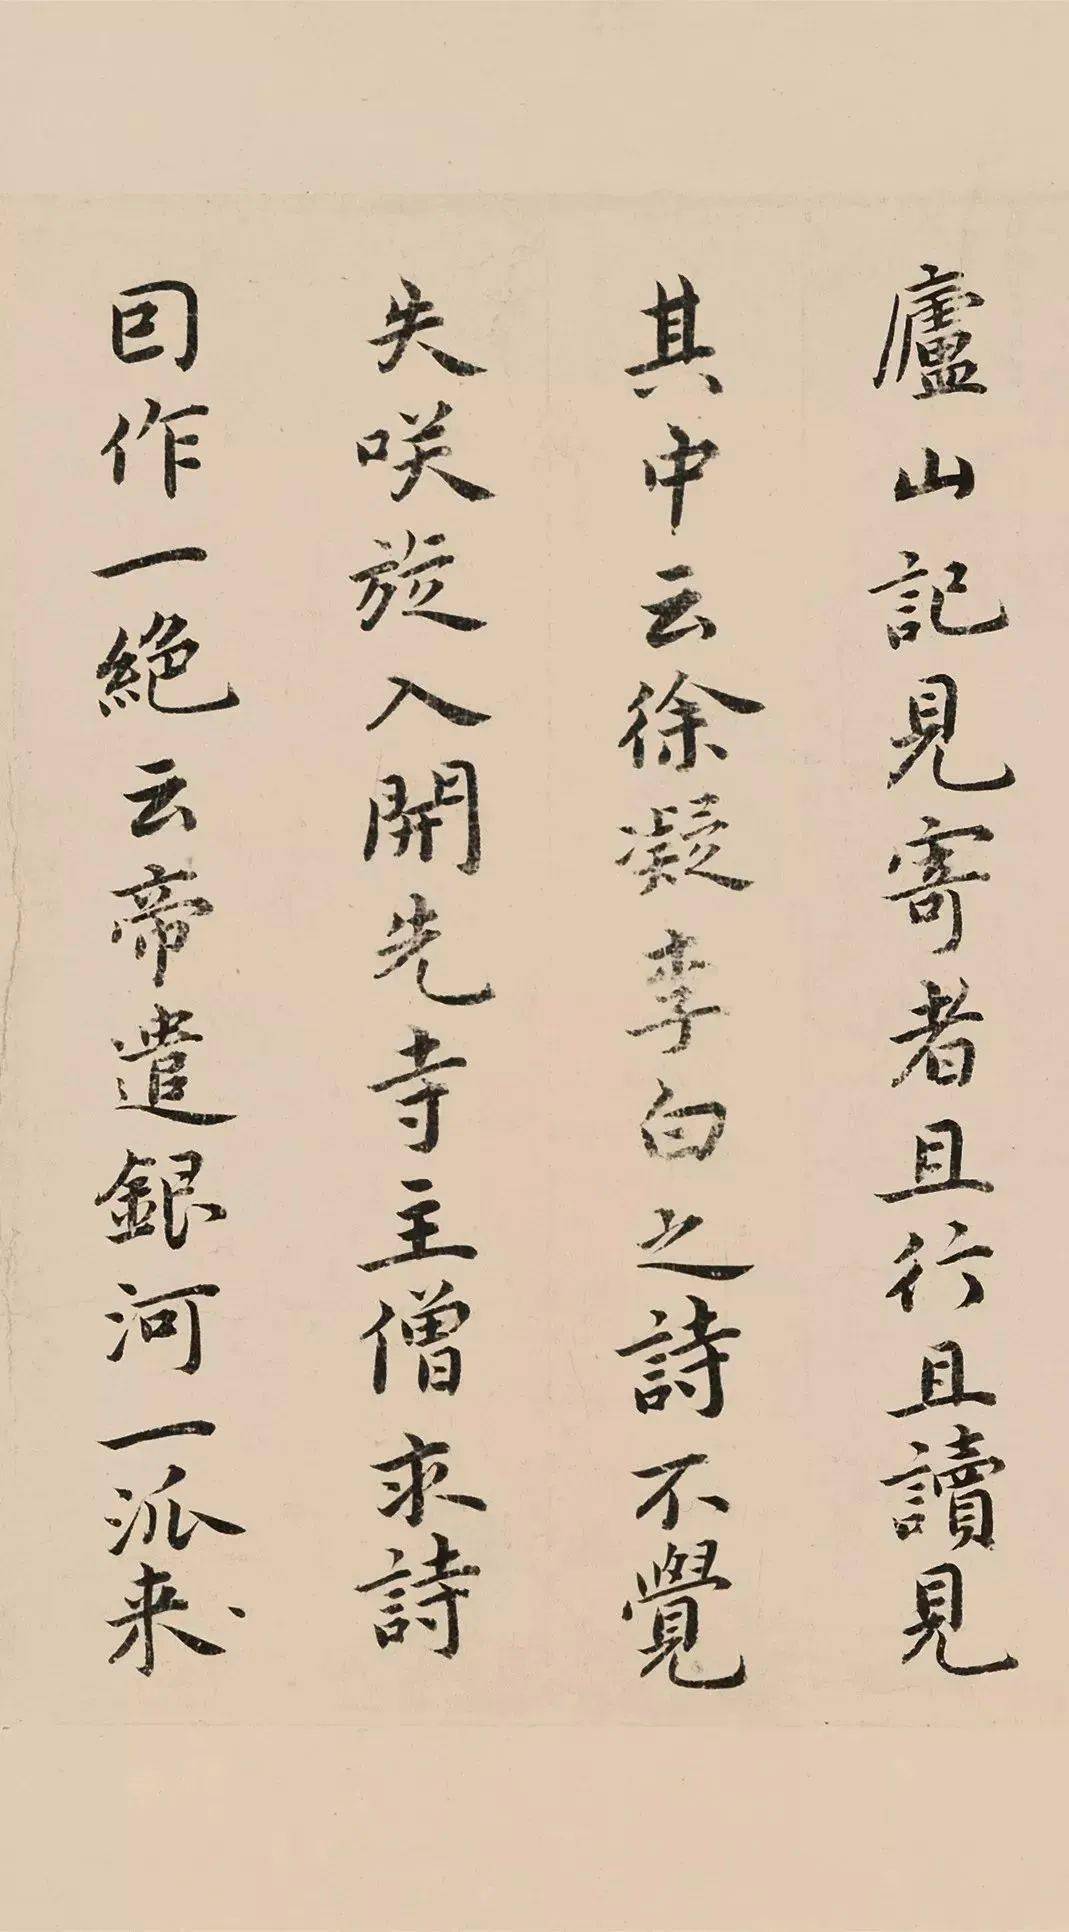 廬山記見寄者且行且讀見
其中云徐凝李白之詩不覺
失咲旋入開先寺主僧求詩
囙作一絕云帝遣銀河一派来